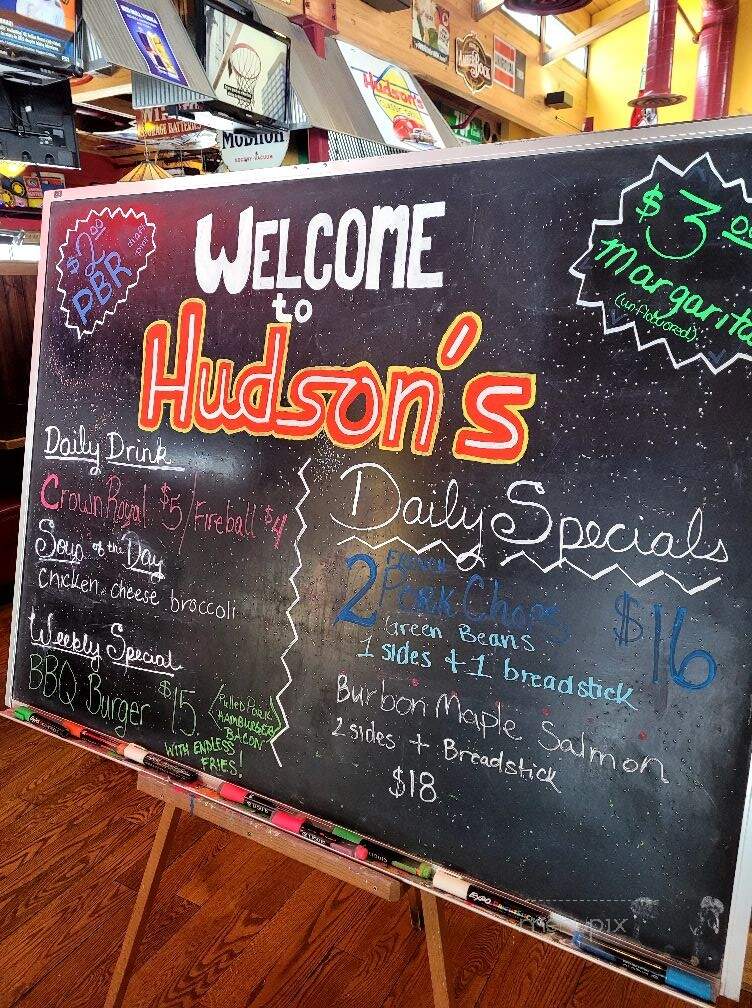 $2.00
draft
pint
PBR
WELCOME
to
Hudson's
$3.00
margarita
(unflavored)
Daily Drink
Crown Royal $5/Fireball $4
Soup of the Day
Chicken cheese broccoli
Weekly Special
BBQ Burger $15
Pulled Pork
HAMBURGER
BACON
WITH ENDLESS
FRIES!
Daily Specials
2
Pork Chops $16
Green Beans
1 sides + 1 breadstick
Burbon Maple Salmon
2 sides + Breadstick
$18
Hudson's
EXPO